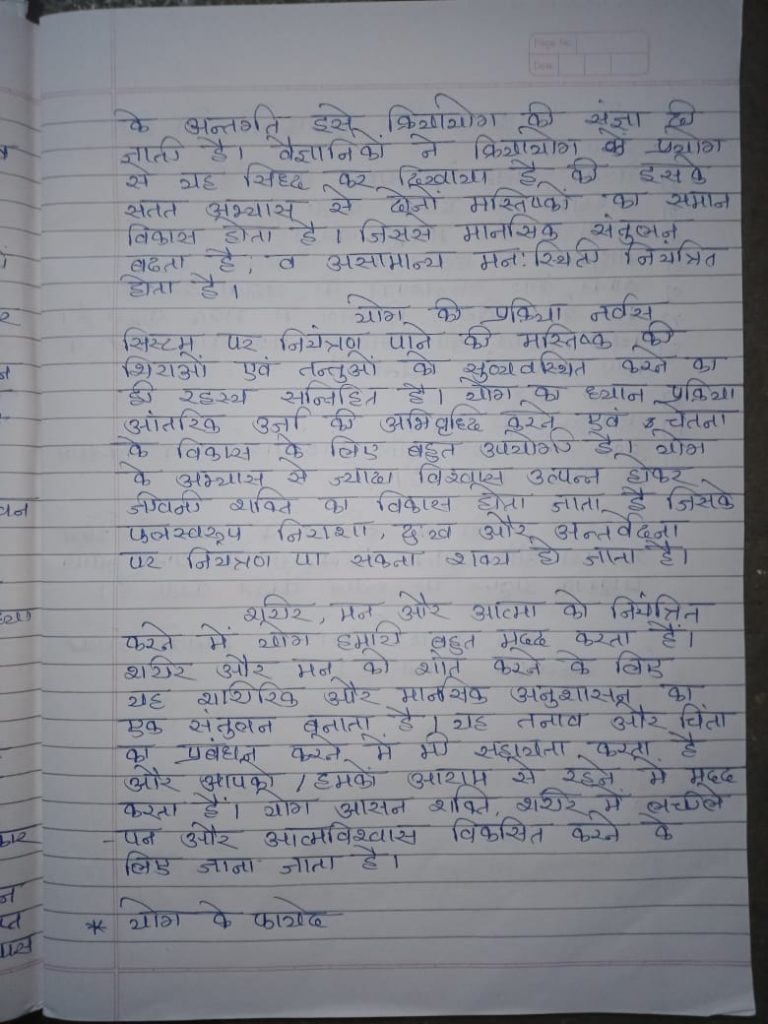 Page No.
Date
के अन्तर्गत इसे क्रियायोग की संज्ञा दी
जाती है। वैज्ञानिकों ने क्रियायोग के प्रयोग
से यह सिध्द कर दिखाया है की इसके
सतत अभ्यास से दोनों मस्तिष्कों का समान
विकास होता है। जिससे मानसिक संतुलन
बढता है, व असामान्य मन:स्थिती नियंत्रित
होता है।
योग की प्रक्रिया नर्वस
सिस्टम पर नियंत्रण पाने की मस्तिष्क की
शिराओं एवं तन्तुओं को सुव्यवस्थित करने का
ही रहस्य सन्निहित है। योग का ध्यान प्रक्रिया
आंतरिक उर्जा की अभिवृध्दि करने एवं चेतना
के विकास के लिए बहुत उपयोगी है। योग
के अभ्यास से ज्यादा विश्वास उत्पन्न होकर
जीवनी शक्ति का विकास होता जाता है जिसके
फलस्वरूप निराशा, दु:ख और अन्तर्वेदना
पर नियंत्रण पा सकना शक्य हो जाता है।
शरीर, मन और आत्मा को नियंत्रित
करने में योग हमारी बहुत मदद करता है।
शरीर और मन को शांत करने के लिए
यह शारीरिक और मानसिक अनुशासन का
एक संतुलन बनाता है। यह तनाव और चिंता
का प्रबंधन करने में भी सहायता करता है
और आपको / हमकों आराम से रहने में मदद
करता है। योग आसन शक्ति, शरीर में लचीले
- पन और आत्मविश्वास विकसित करने के
लिए जाना जाता है।
* योग के फायदे